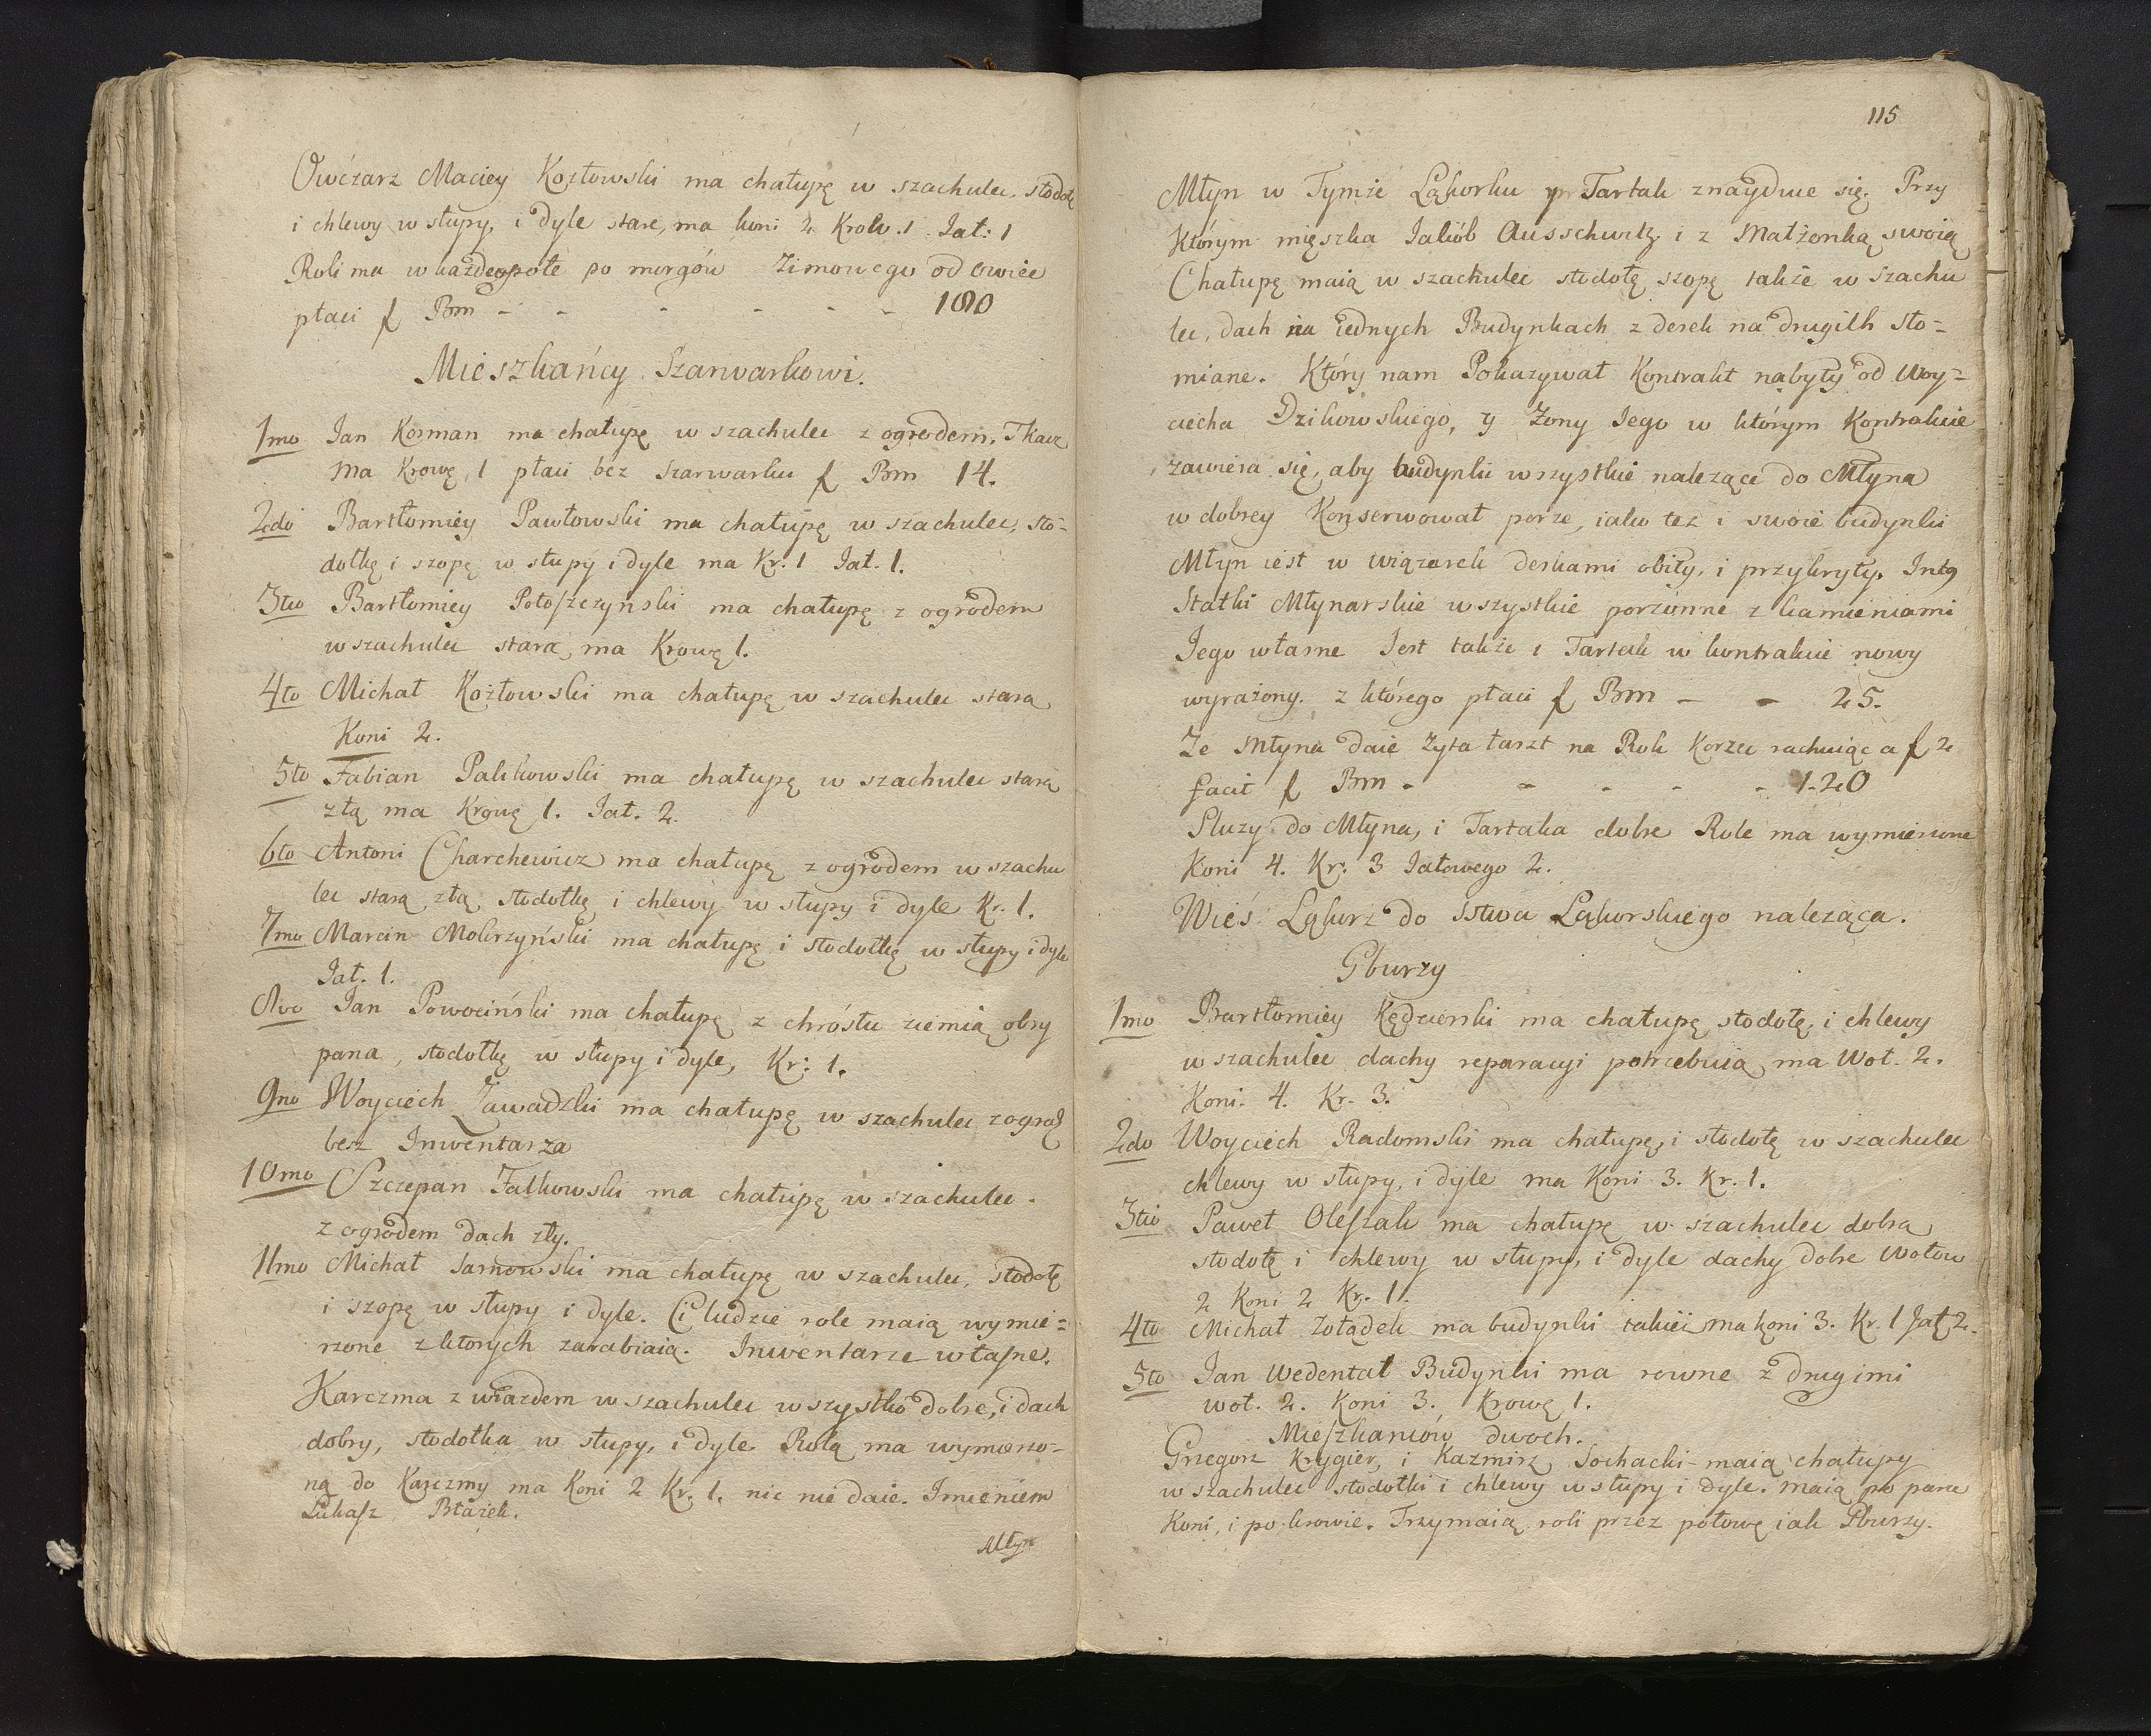 Owczarz Maciey Kozłowski ma chałupę w szachulec, stodołę
i chlewy w słupy, i dyle stare, ma koni 2 Krow. 1 Jał: 1
Roli ma w każde pole po morgów Zimowego od owiec
płaci f Bm - - - - - 180
Mieszkańcy Szarwarkowi.
1mo Jan Korman ma chałupę w szachulec z ogrodem, Tkacz
ma Krowę, 1 płaci bez szarwarku f Bm 14.
2do Bartłomiey Pawłowski ma chałupę w szachulec, sto=
dołkę i szopę w słupy i dyle ma Kr. 1 Jał. 1.
3tio Bartłomiey Potoszczynski ma chałupę z ogrodem
w szachulec stara, ma Krowę 1.
4to Michał Kozłowski ma chałupę w szachulec stara
Koni 2.
5to Fabian Palikowski ma chałupę w szachulec starą
złą ma Krowę 1. Jał. 2.
6to Antoni Charchewicz ma chałupę z ogrodem w szachu
lec starą złą, stodołkę i chlewy w słupy i dyle Kr. 1.
7mo Marcin Mokrzyński ma chałupę i stodołkę w słupy i dyle
Jał. 1.
8vo Jan Powociński ma chałupę z chróstu ziemią obsy
pana, stodołkę w słupy i dyle, Kr: 1.
9no Woyciech Zawadzki ma chałupę w szachulec z ogrod
besz Inwentarza
10mo Szczepan Falkowski ma chałupę w szachulec.
z ogrodem dach zły.
11mo Michał Jarnowski ma chałupę w szachulec, stodołę
i szopę w słupy i dyle. Ci ludzie role maią wymie=
rzone z ktorych zarabiaią. Inwentarze własne.
Karczma z wiazdem w szachulec wszystko dobre, i dach
dobry, stodołka w słupy, i dyle. Rolą ma wymierzo-
ną do Karczmy ma Koni 2 Kr. 1. nic nie daie. Jmieniem
Lukasz Błażek.
Młyn
115
Młyn w Tymże Ląkorku y Tartak znayduie się. Przy
Którym mięszka Jakób Ausschwitz i z Małżonką swoią
Chałupę maią w szachulec stodołę szopę także w szachu
lec, dach na iednych Budynkach z desek na drugich sło=
miane. Który nam Pokazywał Kontrakt nabyty od Woy=
ciecha Dzikowskiego, y Zony Jego w którym Kontrakcie
zawiera się, aby budynki wszystkie nalezące do Młyna
w dobrey Konserwował porze, iako tez i swoie budynki
Młyn iest w wiązarek deskami obity, i przykryty. Intą
Statki Młynarskie wszystkie porządne z kamieniami
Jego własne Jest także i Tartak w kontrakcie nowy
wyrażony. z którego płaci f Bm - - 25.
Ze Młyna daie Zyta łaszt na Rok Korzec rachuiąc a f 2
facit f Bm - - - - - 120
Sluzy do Młyna, i Tartaka dobre Role ma wymierzone
Koni 4. Kr: 3 Jałowego 2.
Wieś Ląkorz do Sstwa Ląkorskiego naleząca.
Gburzy
1mo Bartłomiey Kędzierski ma chałupę, stodołę, i chlewy
w szachulec dachy reparacyi potrzebuią, ma Woł. 2.
Koni. 4. Kr. 3.
2do Woyciech Radomski ma chałupę, i stodołę w szachulec
chlewy w słupy, i dyle ma Koni 3. Kr. 1.
3tio Paweł Oleszak ma chałupę w szachulec dobra
stodołę i chlewy w słupy, i dyle dachy dobre Wołow
2 Koni 2 Kr. 1.
4to Michał Zołądek ma budynki takież ma koni 3. Kr. 1 Jał 2.
5to Jan Wedental Budynki ma rowne z drugimi
woł. 2. Koni 3. Krowę 1.
Mieszkancow dwoch.
Grzegorz Krygier, i Kazmirz Sochacki maią chałupy
w szachulec stodołki i chlewy w słupy i dyle. maią po parze
Koni, i po krowie. Trzymaią roli przez połowę iak Gburzy.